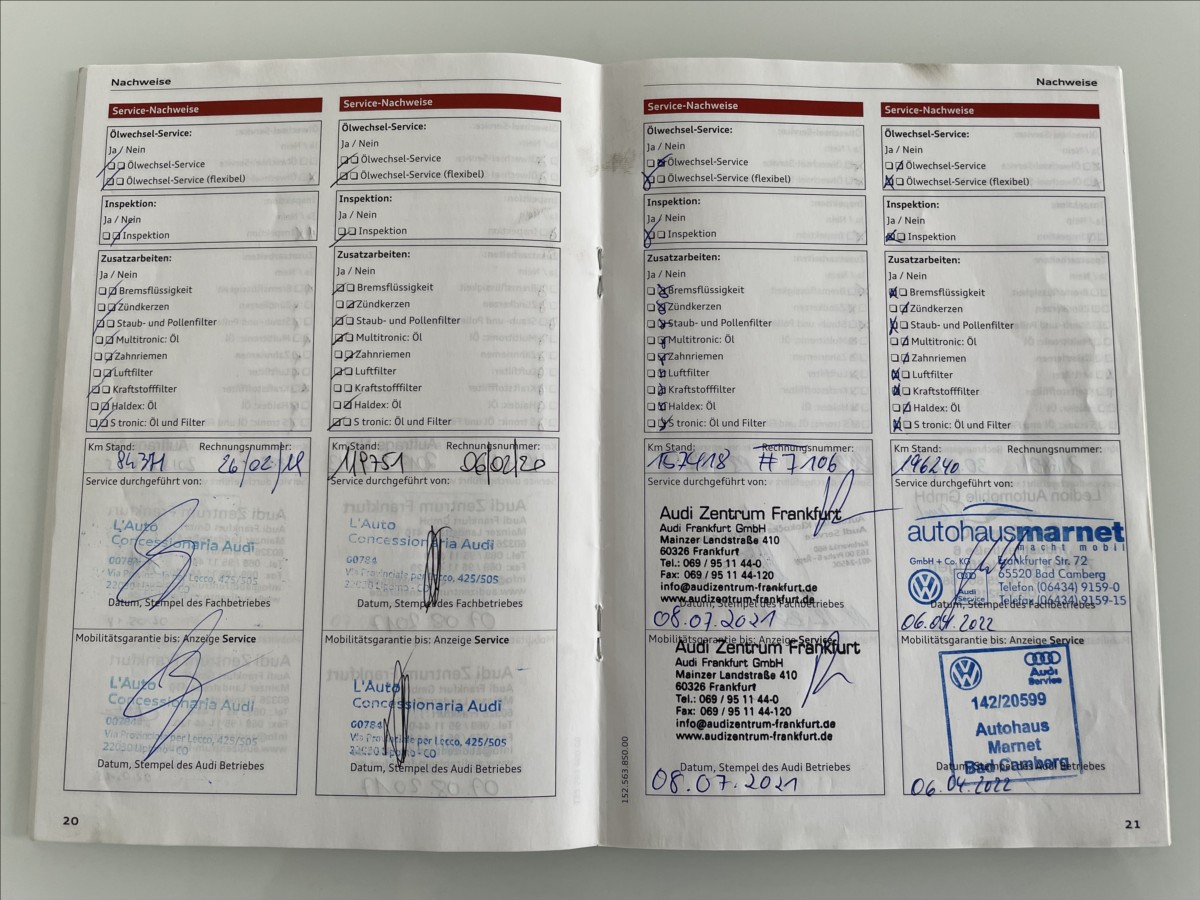 Nachweise
Service-Nachweise
Ölwechsel-Service:
Ja / Nein
Ölwechsel-Service
Ölwechsel-Service (flexibel)
Inspektion:
Ja / Nein
Inspektion
Zusatzarbeiten:
Ja / Nein
Bremsflüssigkeit
Zündkerzen
Staub- und Pollenfilter
Multitronic: Öl
Zahnriemen
Luftfilter
Kraftstofffilter
Haldex: Öl
S tronic: Öl und Filter
Km Stand: Rechnungsnummer:
84371 26/02/19
Service durchgeführt von:
L'Auto
Concessionaria Audi
00784
Via Provinciale per Lecco, 425/505
Datum, Stempel des Fachbetriebes
Mobilitätsgarantie bis: Anzeige Service
L'Auto
Concessionaria Audi
00784
Via Provinciale per Lecco, 425/505
Datum, Stempel des Audi Betriebes
20
Service-Nachweise
Ölwechsel-Service:
Ja / Nein
Ölwechsel-Service
Ölwechsel-Service (flexibel)
Inspektion:
Ja / Nein
Inspektion
Zusatzarbeiten:
Ja / Nein
Bremsflüssigkeit
Zündkerzen
Staub- und Pollenfilter
Multitronic: Öl
Zahnriemen
Luftfilter
Kraftstofffilter
Haldex: Öl
S tronic: Öl und Filter
Km Stand: Rechnungsnummer:
119751 06/02/20
Service durchgeführt von:
L'Auto
Concessionaria Audi
00784
Via Provinciale per Lecco, 425/505
Datum, Stempel des Fachbetriebes
Mobilitätsgarantie bis: Anzeige Service
L'Auto
Concessionaria Audi
00784
Via Provinciale per Lecco, 425/505
Datum, Stempel des Audi Betriebes
Nachweise
Service-Nachweise
Ölwechsel-Service:
Ja / Nein
Ölwechsel-Service
Ölwechsel-Service (flexibel)
Inspektion:
Ja / Nein
Inspektion
Zusatzarbeiten:
Ja / Nein
Bremsflüssigkeit
Zündkerzen
Staub- und Pollenfilter
Multitronic: Öl
Zahnriemen
Luftfilter
Kraftstofffilter
Haldex: Öl
S tronic: Öl und Filter
Km Stand: Rechnungsnummer:
157418 #7106
Service durchgeführt von:
Audi Zentrum Frankfurt
Audi Frankfurt GmbH
Mainzer Landstraße 410
60326 Frankfurt
Tel.: 069 / 95 11 44-0
Fax: 069 / 95 11 44-120
info@audizentrum-frankfurt.de
www.audizentrum-frankfurt.de
Datum, Stempel des Fachbetriebes
08.07.2021
Mobilitätsgarantie bis: Anzeige Service
Audi Zentrum Frankfurt
Audi Frankfurt GmbH
Mainzer Landstraße 410
60326 Frankfurt
Tel.: 069 / 95 11 44-0
Fax: 069 / 95 11 44-120
info@audizentrum-frankfurt.de
www.audizentrum-frankfurt.de
Datum, Stempel des Audi Betriebes
08.07.2021
152.563.850.00
Service-Nachweise
Ölwechsel-Service:
Ja / Nein
Ölwechsel-Service
Ölwechsel-Service (flexibel)
Inspektion:
Ja / Nein
Inspektion
Zusatzarbeiten:
Ja / Nein
Bremsflüssigkeit
Zündkerzen
Staub- und Pollenfilter
Multitronic: Öl
Zahnriemen
Luftfilter
Kraftstofffilter
Haldex: Öl
S tronic: Öl und Filter
Km Stand: Rechnungsnummer:
196240
Service durchgeführt von:
autohausmarnet
macht mobil
GmbH + Co. KG Frankfurter Str. 72
65520 Bad Camberg
Audi Service
Telefon (06434) 9159-0
Telefax (06434) 9159-15
Datum, Stempel des Fachbetriebes
06.04.2022
Mobilitätsgarantie bis: Anzeige Service
Audi
Service
142/20599
Autohaus
Marnet
Bad Camberg
Datum, Stempel des Audi Betriebes
06.04.2022
21